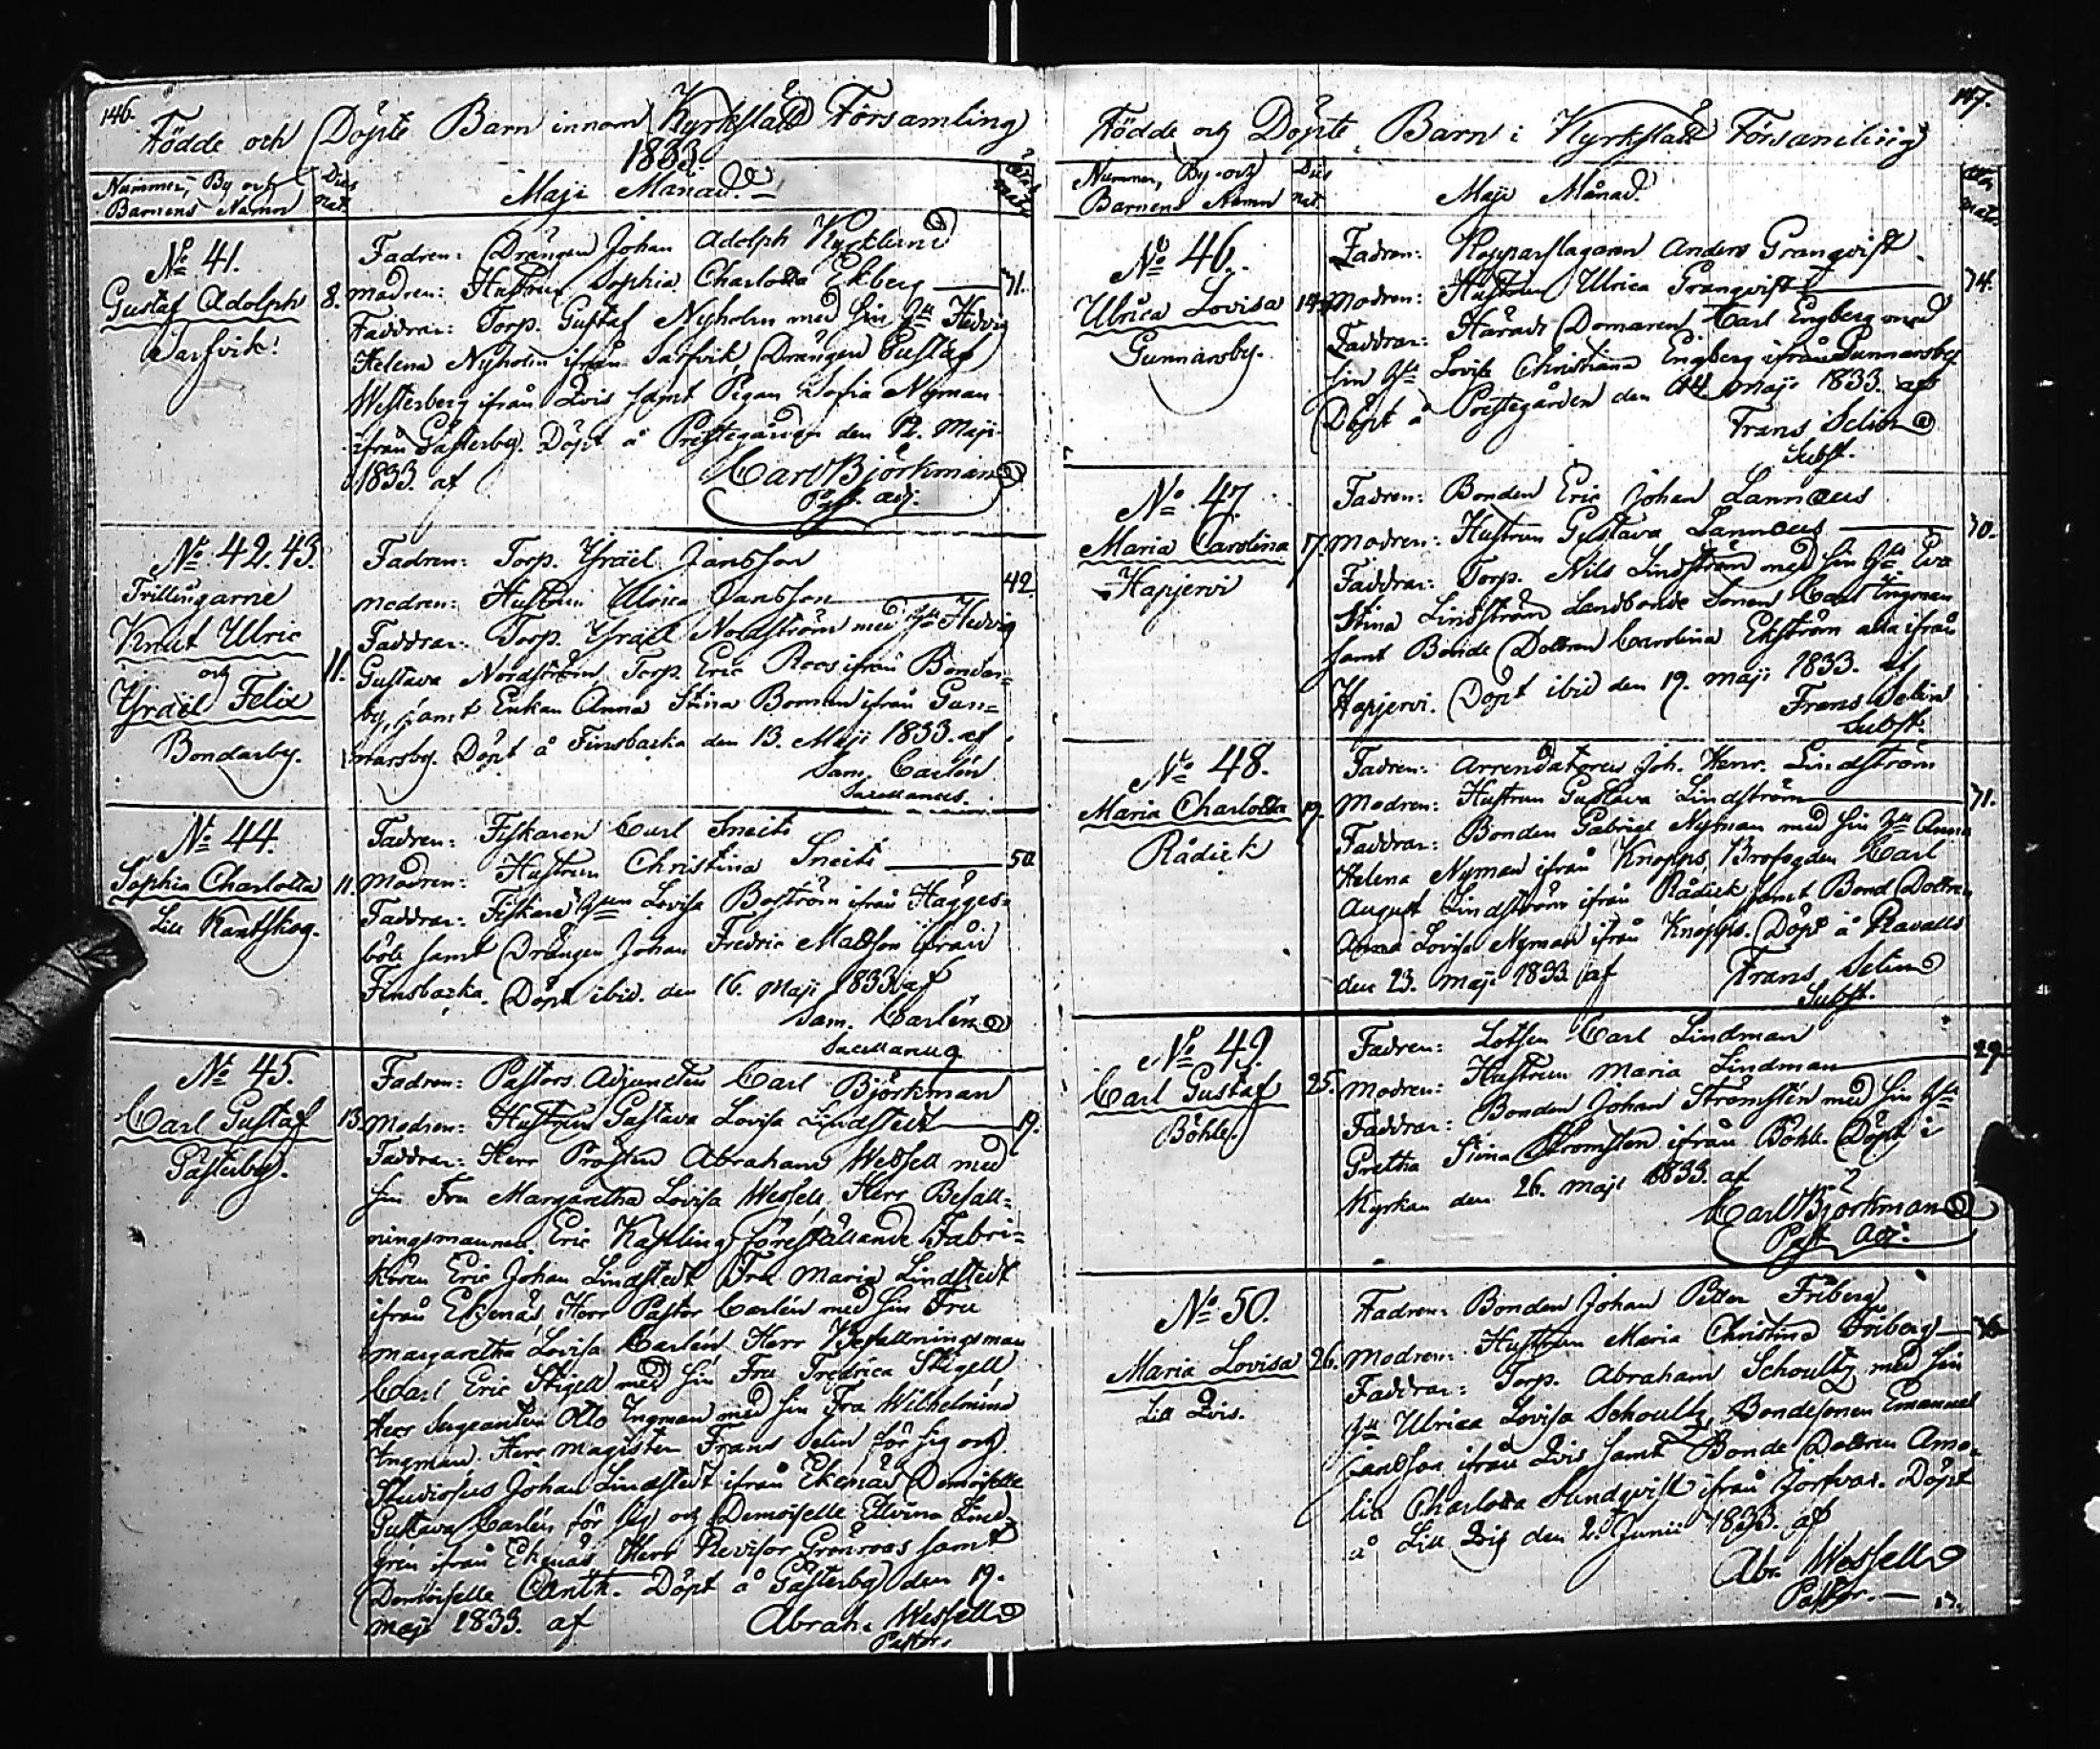 146.
Födde och Döpte Barn innom Kyrkslätt Församling
1833.
Nummer, By och Barnens Namn
Dies nat.
Maji Månad.
No 41.
Gustaf Adolph
Sarfvik.
8.
Fadren: Drängen Johan Adolph Kycklund
Modren: Hustrun Sophia Charlotta Ekberg 31.
Faddrar: Torp. Gustaf Nyholm med sin Hu Hedvig
Helena Nyholm ifrån Sarfvik, Drängen Gustaf
Westerberg ifrån Qvis samt Pigan Sofia Nyman
ifrån Gästerby. Döpt å Prestegården den 12. Maji
1833. af Carl Björkman
Past. adj.
No 42. 43.
Tvillingarne
Knut Ulric
och
Ysraël Felix
Bondarby.
11.
Fadren: Torp. Ysraël Jansson
Modren: Hustrun Ulrica Jansson 42.
Faddrar: Torp. Ysraël Nordström med Hu Hedvig
Gustava Nordström, Torp. Eric Roos ifrån Bondar=
by, samt Enkan Anna Stina Boman ifrån Gun=
narsby. Döpt å Finsbacka den 13. Maji 1833. af
Sam. Carlén
Sacellanus.
No 44.
Sophia Charlotta
Lill Kantskog.
11.
Fadren: Fiskaren Carl Sneits
Modren: Hustrun Christina Sneits 50.
Faddrar: Fiskare Hun Lovisa Boström ifrån Hägges=
böle samt Drängen Johan Fredric Mattson ifrån
Finsbacka. Döpt ibid. den 16. Maji 1833 af
Sam. Carlén
Sacellanus.
No 45.
Carl Gustaf
Gästerby.
13.
Fadren: Pastors Adjuncten Carl Björkman
Modren: Hustrun Gustava Lovisa Lindstedt 19.
Faddrar: Herr Prosten Abraham Wessell med
sin Fru Margaretha Lovisa Wessell, Herr Befall=
ningsmannen Eric Kastling föreställande Fabri=
kören Eric Johan Lindstedt Fru Maria Lindstedt
ifrån Ekenäs, Herr Pastor Carlén med sin Fru
Margaretha Lovisa Carlén Herr Befallningsman
Carl Eric Stigell med sin Fru Fredrica Stigell
Herr Sergeanten Otto Ingman med sin Fru Wilhelmina
Ingman. Herr Magister Frans Selin för sig och
Studiosus Johan Lindstedt ifrån Ekenäs Demoiselle
Gustava Carlén för sig och Demoiselle Elvina Lind=
grén ifrån Ekenäs Herr Revisor Grönroos samt
Demoiselle Anth. Döpt å Gästerby den 19.
Maji 1833. af Abrah. Wessell
Pastor.
147.
Födde och Döpte Barn i Kyrkslätt Församling
Nummer, By och Barnens Namn
Dies nat.
Maji Månad.
No 46.
Ulrica Lovisa
Gunnarsby.
14.
Fadren: Kopparslagaren Anders Granqvist
Modren: Hustrun Ulrica Granqvist 34.
Faddrar: Härads Domaren Carl Engberg med
sin Hu Lovisa Christiana Engberg ifrån Gunnarsby
Döpt å Prestegården den Maji 1833. af
Frans Selin
Subst.
No 47.
Maria Carolina
Hapjervi
17.
Fadren: Bonden Eric Johan Lannæus
Modren: Hustrun Gustava Lannæus 30.
Faddrar: Torp. Nils Lindström med sin Hu Eva
Stina Lindström Landbonde Sonen Carl Ingman
samt Bonde Dottren Carolina Ekström alla ifrån
Hapjervi. Döpt ibid den 19. Maji 1833. af
Frans Selin
Subst.
No 48.
Maria Charlotta
Rådick
19.
Fadren: Arrendatoren Joh. Henr. Lindström
Modren: Hustrun Gustava Lindström 31.
Faddrar: Bonden Gabriel Nyman med sin Hu Anna
Helena Nyman ifrån Knopps, Brofogden Carl
August Lindström ifrån Rådick samt Bond Dottren
Anna Lovisa Nyman ifrån Knopps. Döpt å Ravalls
den 23. Maji 1833. af Frans Selin
Subst.
No 49.
Carl Gustaf
Böhle.
25.
Fadren: Lotsen Carl Lindman
Modren: Hustrun Maria Lindman 29.
Faddrar: Bonden Johan Strömstén med sin Hu
Gretha Stina Strömsten ifrån Böhle. Döpt i
Kyrkan den 26. Maji 1833. af
Carl Björkman
Past. Adj.
No 50.
Maria Lovisa
Lill Qvis.
26.
Fadren: Bonden Johan Petter Friberg
Modren: Hustrun Maria Christina Friberg
Faddrar: Torp. Abraham Schoultz med sin
Hu Ulrica Lovisa Schoultz, Bondesonen Emanuel
Jansson ifrån Qvis samt Bonde Dottren Ama=
lia Charlotta Sundqvist ifrån Jorfvas. Döpt
å Lill Qvis den 2. Junii 1833. af
Abr. Wessell
Pastor.